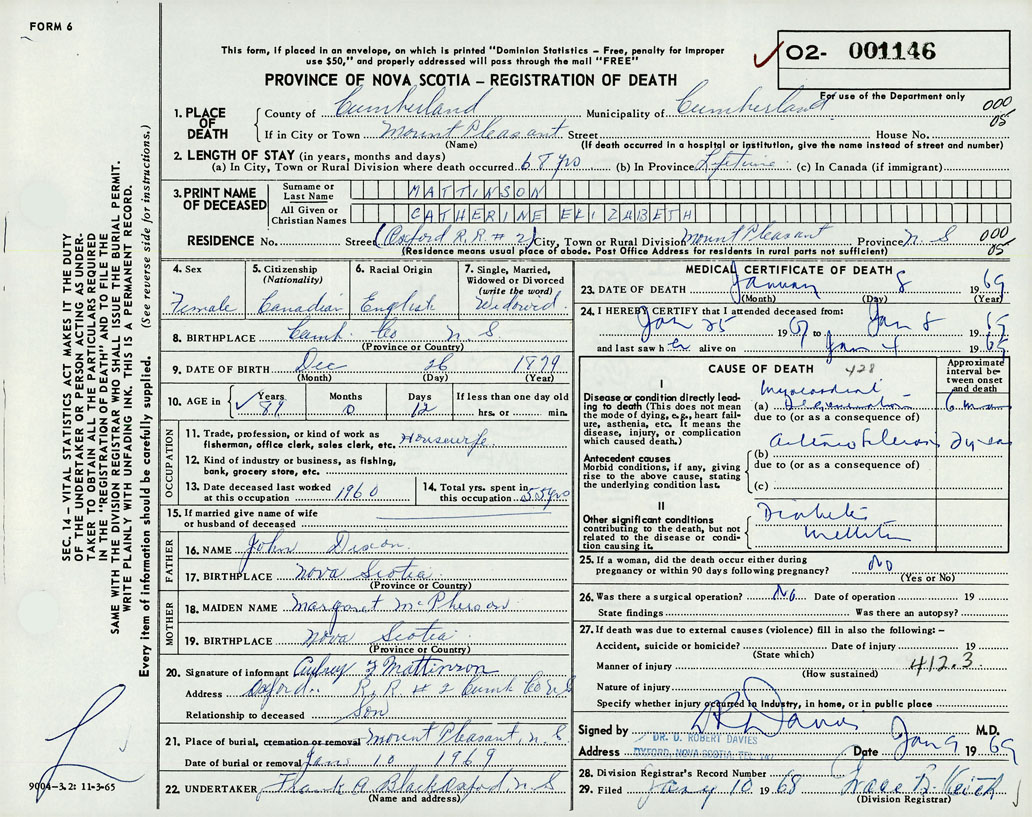 FORM 6
This form, if placed in an envelope, on which is printed "Dominion Statistics – Free, penalty for improper
use $50," and properly addressed will pass through the mail "FREE"
PROVINCE OF NOVA SCOTIA – REGISTRATION OF DEATH
02- 001146
For use of the Department only
000
05
1. PLACE OF DEATH
County of Cumberland Municipality of Cumberland
If in City or Town Mount Pleasant Street House No.
(Name) (If death occurred in a hospital or institution, give the name instead of street and number)
2. LENGTH OF STAY (in years, months and days)
(a) In City, Town or Rural Division where death occurred 68 yrs (b) In Province Lifetime (c) In Canada (if immigrant)
3. PRINT NAME OF DECEASED
Surname or Last Name MATTINSON
All Given or Christian Names CATHERINE ELIZABETH
RESIDENCE No. Street (Oxford R.R. # 2) City, Town or Rural Division Mount Pleasant Province N. S
000
05
(Residence means usual place of abode. Post Office Address for residents in rural parts not sufficient)
4. Sex
Female
5. Citizenship
(Nationality)
Canadian
6. Racial Origin
English
7. Single, Married,
Widowed or Divorced
(write the word)
Widowed
8. BIRTHPLACE Cumb. Co N S
(Province or Country)
9. DATE OF BIRTH Dec 26 1879
(Month) (Day) (Year)
10. AGE in Years Months Days If less than one day old
0 12 hrs. or min.
OCCUPATION
11. Trade, profession, or kind of work as
fisherman, office clerk, sales clerk, etc. Housewife
12. Kind of industry or business, as fishing,
bank, grocery store, etc.
13. Date deceased last worked
at this occupation 1960
14. Total yrs. spent in
this occupation 55 yrs
15. If married give name of wife
or husband of deceased
FATHER
16. NAME John Dixon
17. BIRTHPLACE Nova Scotia
(Province or Country)
MOTHER
18. MAIDEN NAME Margaret McPherson
19. BIRTHPLACE Nova Scotia
(Province or Country)
20. Signature of informant Mattinson
Address Oxford R. R # 2 Cumb Co N S
Relationship to deceased Son
21. Place of burial, cremation or removal Mount Pleasant, N. S
Date of burial or removal Jan 10 1969
22. UNDERTAKER Frank A Black Oxford N S
(Name and address)
MEDICAL CERTIFICATE OF DEATH
23. DATE OF DEATH January 8 1969
(Month) (Day) (Year)
24. I HEREBY CERTIFY that I attended deceased from:
Jan 25 1967 to Jan 8 19
and last saw her alive on Jan 19
CAUSE OF DEATH 428
Approximate
interval be-
tween onset
and death
I
Disease or condition directly lead-
ing to death (This does not mean
the mode of dying, e.g., heart fail-
ure, asthenia, etc. It means the
disease, injury, or complication
which caused death.)
Myocardial
(a) Degeneration 6 mos
due to (or as a consequence of)
Arterio Sclerosis
Antecedent causes
Morbid conditions, if any, giving
rise to the above cause, stating
the underlying condition last.
(b)
due to (or as a consequence of)
(c)
II
Other significant conditions
contributing to the death, but not
related to the disease or condi-
tion causing it.
Diabetes
Mellitus
25. If a woman, did the death occur either during
pregnancy or within 90 days following pregnancy? No
(Yes or No)
26. Was there a surgical operation? No Date of operation 19
State findings Was there an autopsy?
27. If death was due to external causes (violence) fill in also the following: –
Accident, suicide or homicide? Date of injury 19
(State which)
Manner of injury 412.3
(How sustained)
Nature of injury
Specify whether injury occurred in Industry, in home, or in public place
Signed by D R Davies M.D.
DR. D. ROBERT DAVIES
OXFORD, NOVA SCOTIA
Address Date Jan 9 1969
28. Division Registrar's Record Number
29. Filed Jany 10 1968 Grace B. Keith
(Division Registrar)
SEC. 14 – VITAL STATISTICS ACT MAKES IT THE DUTY
OF THE UNDERTAKER OR PERSON ACTING AS UNDER-
TAKER TO OBTAIN ALL THE PARTICULARS REQUIRED
IN THE "REGISTRATION OF DEATH" AND TO FILE THE
SAME WITH THE DIVISION REGISTRAR WHO SHALL ISSUE THE BURIAL PERMIT.
WRITE PLAINLY WITH UNFADING INK. THIS IS A PERMANENT RECORD.
Every item of information should be carefully supplied. (See reverse side for instructions.)
9004-3.2: 11-3-65